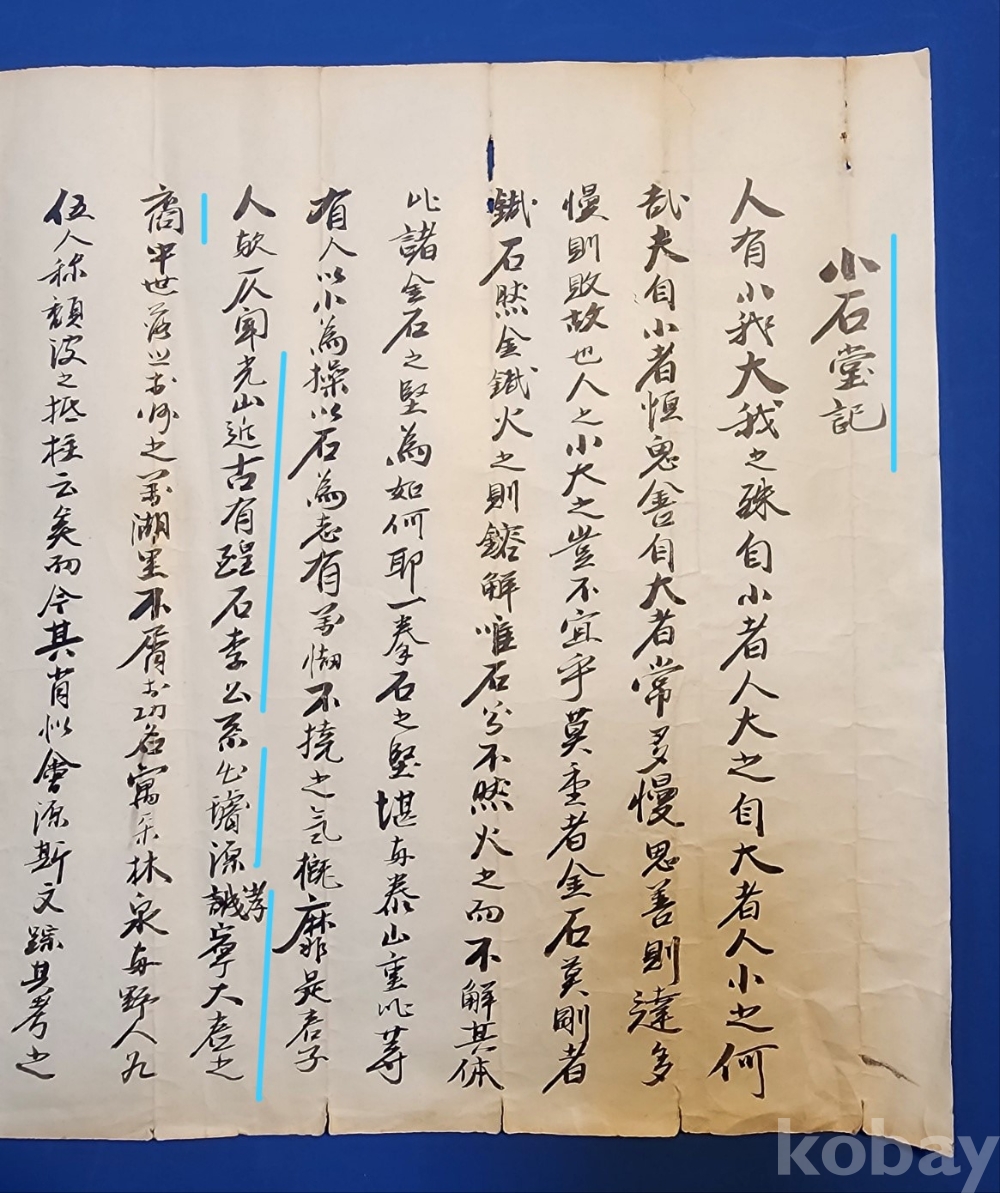 小石堂記
人有小我大我之殊自小者人大之自大者人小之何
哉夫自小者恒思善自大者常多慢思善則達多
慢則敗故也人之小大之豈不宜乎莫重者金石莫剛者
鐵石然金鐵火之則鎔解唯石兮不然火之而不解其体
比諸金石之堅為如何耶一拳石之堅堪與泰山重此等
有人以小為操以石為志有萬㤼不撓之氣概靡是君子
人歟仄聞光山近古有醒石李公系出璿源誠孝寧大君之
裔中世落於州之萬湖里不屑於功名寓樂林泉與野人為
伍人称頹波之抵柱云矣而今其肖似會源斯文踪其考之
kobay